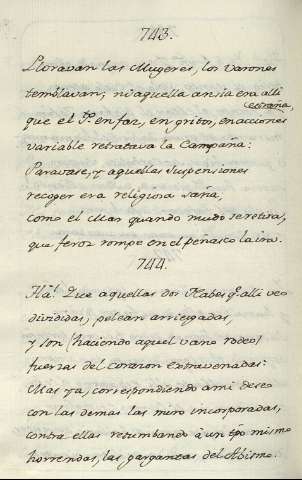 743.
Lloravan las Mugeres, los Varones
temblavan; ni aquella ansia era alli
estraña,
que el Po. en faz, en gritos, en acciones
variable retratava la Campaña:
Paravase, y aquellas suspensiones
recoger era religiosa saña,
como el Mar quando mudo se retira,
que feroz rompe en el peñasco la ira.
744.
Ha! Dice aquellas dos Nabes q. alli veo
divididas, pelean arriezgadas,
y son (haciendo aquel vano rodeo)
fuerzas del corazon extravenadas:
Mas ya, correspondiendo ami deseo
con las demas las miro incorporadas,
contra ellas retumbando à un tpo mismo
horrendas, las gargantas del Abismo.